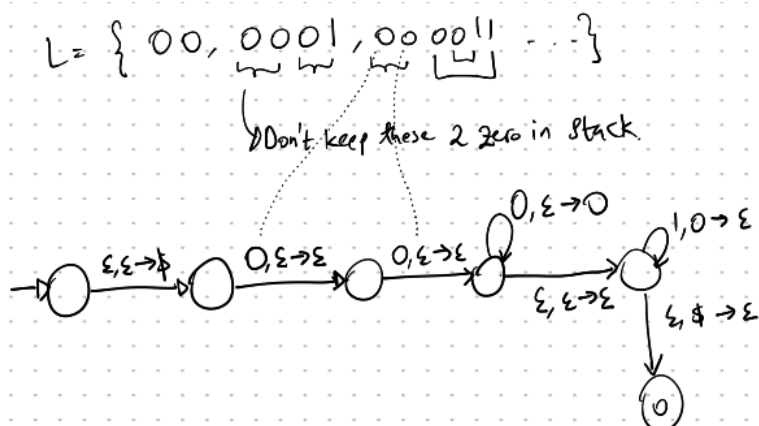 L = { 00, 0001, 000011 ... }
Don't keep these 2 zero in stack.
0,ε→0
1,0→ε
ε,ε→$ 0,ε→ε 0,ε→ε
ε,ε→ε
ε,$→ε